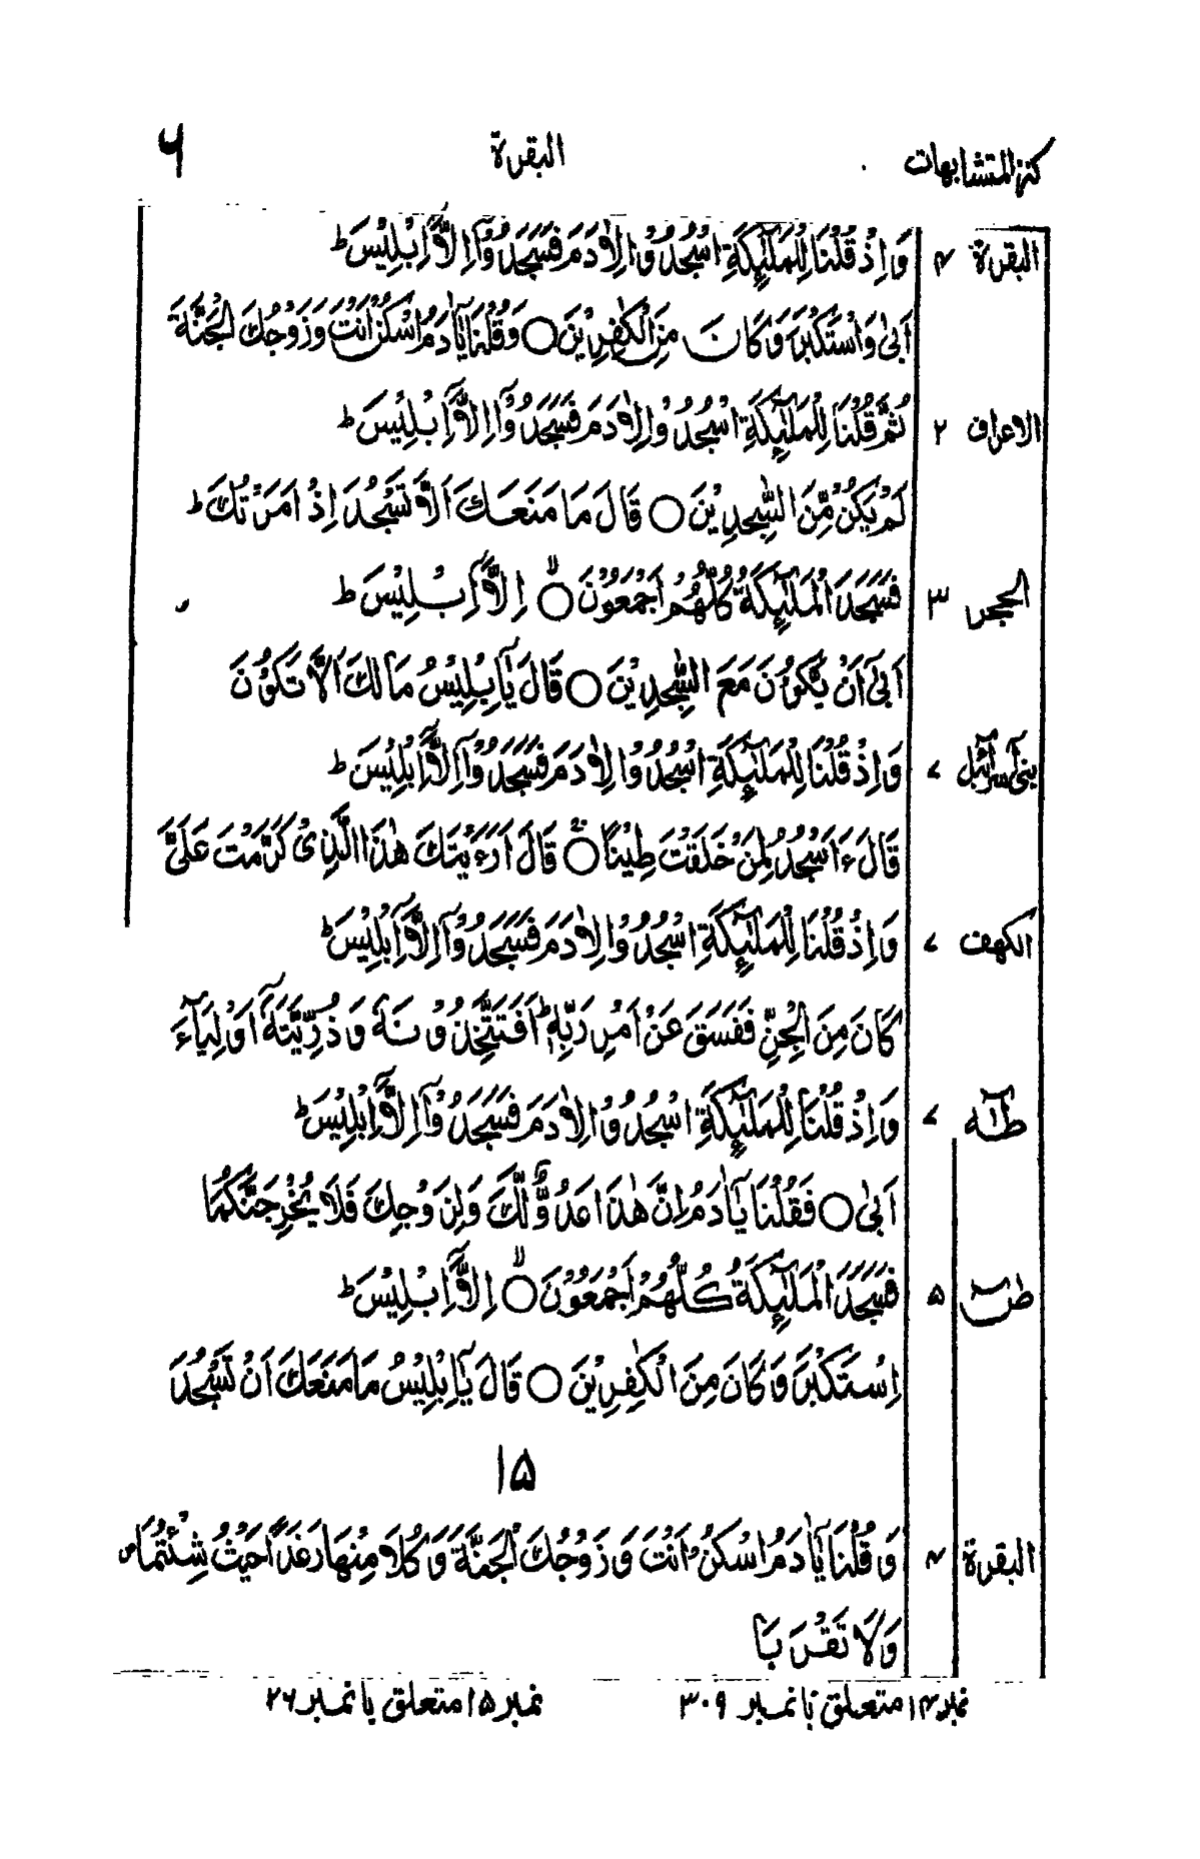 كنز المتشابهات البقرة ٦
البقرة ۴ وَاِذْ قُلْنَا لِلْمَلٰٓئِكَةِ اسْجُدُوْا لِاٰدَمَ فَسَجَدُوْٓا اِلَّآ اِبْلِيْسَ ؕ
اَبٰى وَاسْتَكْبَرَ وَكَانَ مِنَ الْكٰفِرِيْنَ ○ وَقُلْنَا يٰٓاٰدَمُ اسْكُنْ اَنْتَ وَزَوْجُكَ الْجَنَّةَ
الاعراف ۲ ثُمَّ قُلْنَا لِلْمَلٰٓئِكَةِ اسْجُدُوْا لِاٰدَمَ فَسَجَدُوْٓا اِلَّآ اِبْلِيْسَ ؕ
لَمْ يَكُنْ مِّنَ السّٰجِدِيْنَ ○ قَالَ مَا مَنَعَكَ اَلَّا تَسْجُدَ اِذْ اَمَرْتُكَ ؕ
الحجر ۳ فَسَجَدَ الْمَلٰٓئِكَةُ كُلُّهُمْ اَجْمَعُوْنَ ○ اِلَّآ اِبْلِيْسَ ؕ
اَبٰٓى اَنْ يَّكُوْنَ مَعَ السّٰجِدِيْنَ ○ قَالَ يٰٓاِبْلِيْسُ مَا لَكَ اَلَّا تَكُوْنَ
بنی اسرآئيل ۷ وَاِذْ قُلْنَا لِلْمَلٰٓئِكَةِ اسْجُدُوْا لِاٰدَمَ فَسَجَدُوْٓا اِلَّآ اِبْلِيْسَ ؕ
قَالَ ءَاَسْجُدُ لِمَنْ خَلَقْتَ طِيْنًا ○ قَالَ اَرَءَيْتَكَ هٰذَا الَّذِىْ كَرَّمْتَ عَلَىَّ
الكهف ۷ وَاِذْ قُلْنَا لِلْمَلٰٓئِكَةِ اسْجُدُوْا لِاٰدَمَ فَسَجَدُوْٓا اِلَّآ اِبْلِيْسَ ؕ
كَانَ مِنَ الْجِنِّ فَفَسَقَ عَنْ اَمْرِ رَبِّهٖ ؕ اَفَتَتَّخِذُوْنَهٗ وَذُرِّيَّتَهٗٓ اَوْلِيَآءَ
طٰهٰ ۷ وَاِذْ قُلْنَا لِلْمَلٰٓئِكَةِ اسْجُدُوْا لِاٰدَمَ فَسَجَدُوْٓا اِلَّآ اِبْلِيْسَ ؕ
اَبٰى ○ فَقُلْنَا يٰٓاٰدَمُ اِنَّ هٰذَا عَدُوٌّ لَّكَ وَلِزَوْجِكَ فَلَا يُخْرِجَنَّكُمَا
صٓ ۵ فَسَجَدَ الْمَلٰٓئِكَةُ كُلُّهُمْ اَجْمَعُوْنَ ○ اِلَّآ اِبْلِيْسَ ؕ
اِسْتَكْبَرَ وَكَانَ مِنَ الْكٰفِرِيْنَ ○ قَالَ يٰٓاِبْلِيْسُ مَا مَنَعَكَ اَنْ تَسْجُدَ
۱۵
البقرة ۴ وَقُلْنَا يٰٓاٰدَمُ اسْكُنْ اَنْتَ وَزَوْجُكَ الْجَنَّةَ وَكُلَا مِنْهَا رَغَدًا حَيْثُ شِئْتُمَا ص
وَلَا تَقْرَبَا
نمبر ۱۴ متعلق با نمبر ۳۰۹ نمبر ۱۵ متعلق با نمبر ۲۶